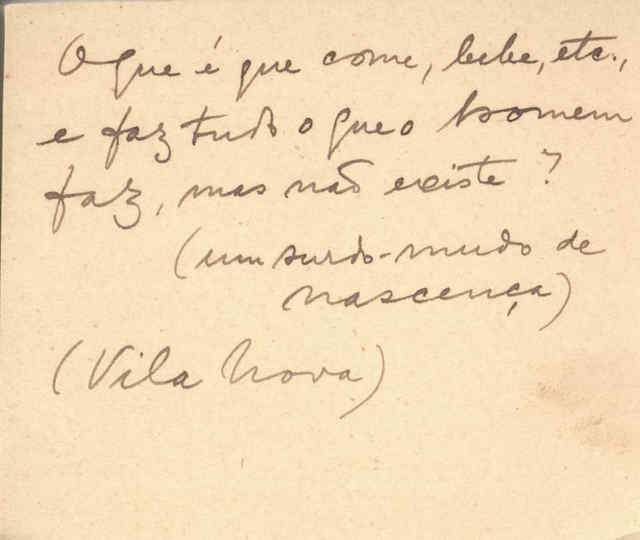 O que é que come, bebe, etc.,
e faz tudo o que o homem
faz, mas não existe?
(um surdo-mudo de
nascença)
(Vila Nova)